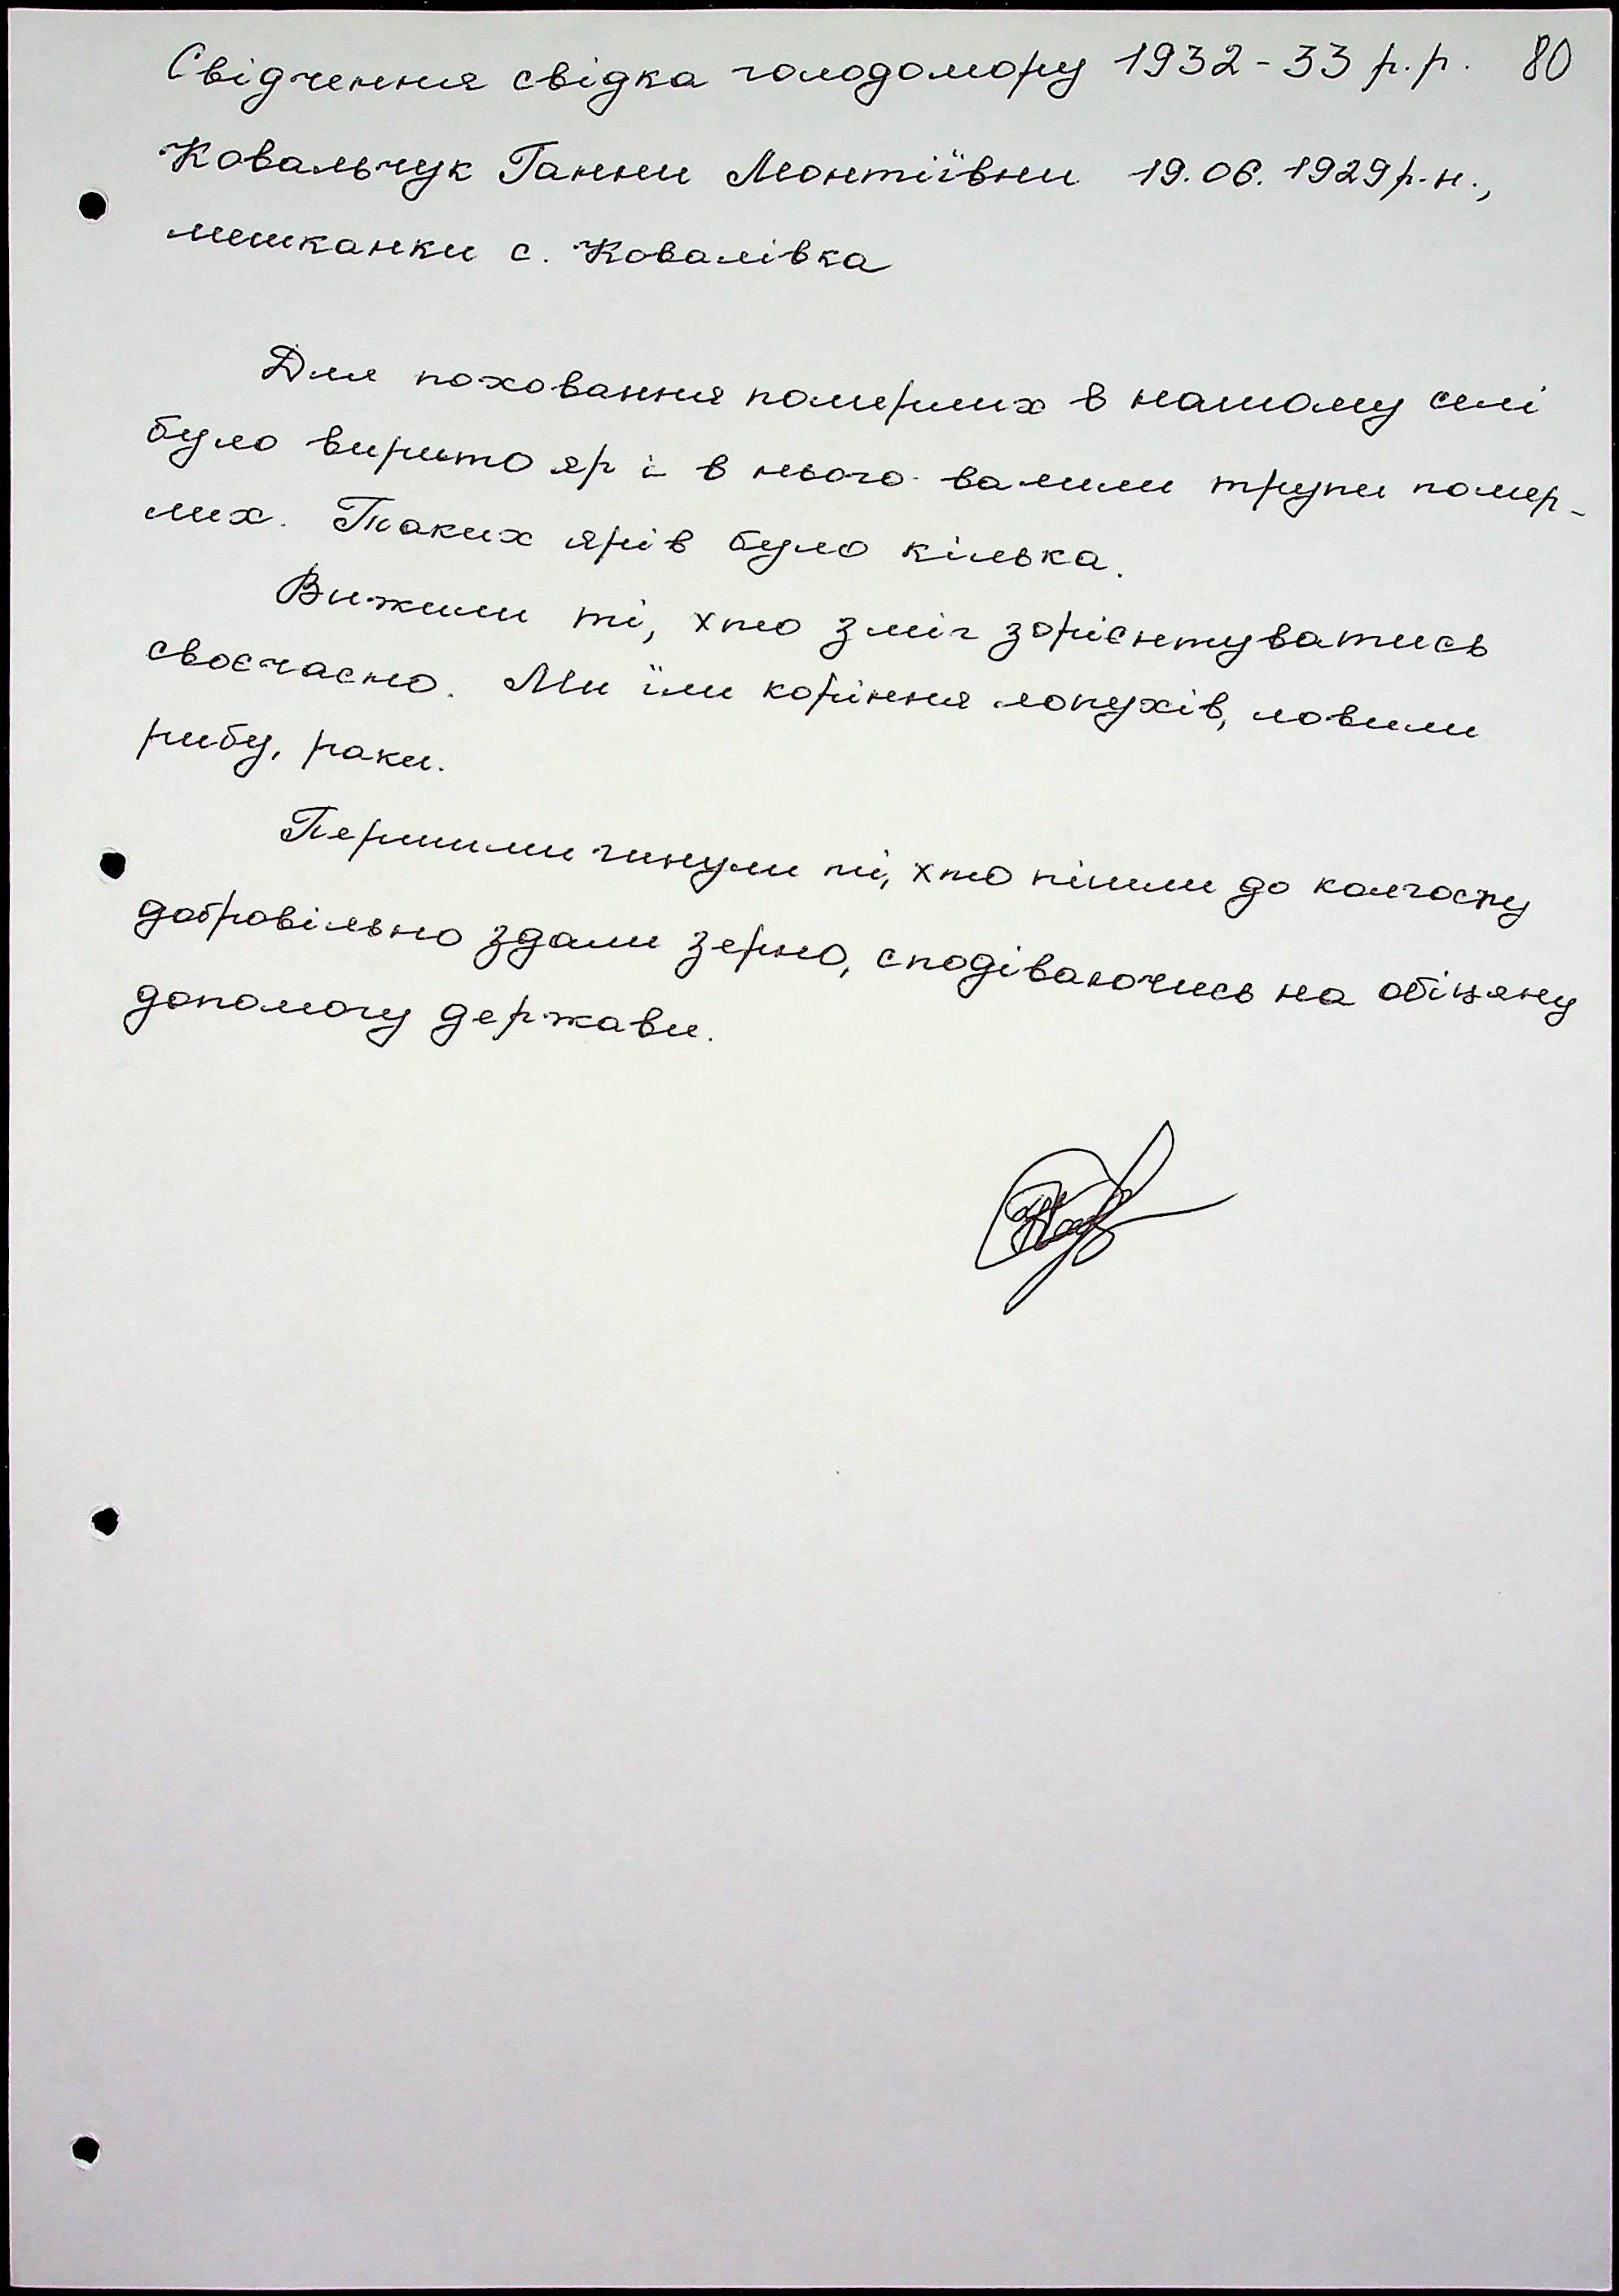 Свідчення свідка голодомору 1932-33 р.р. 80
Ковальчук Ганни Леонтіївни 19.06.1929р.н.,
мешканки с. Ковалівка
Для поховання померлих в нашому селі
було вирито яр і в нього валили трупи помер-
лих. Таких ярів було кілька.
Вижили ті, хто зміг зорієнтуватись
своєчасно. Ми їли коріння лопухів, ловили
рибу, раки.
Першими гинули ті, хто пішли до колгоспу
добровільно здали зерно, сподіваючись на обіцяну
допомогу держави.